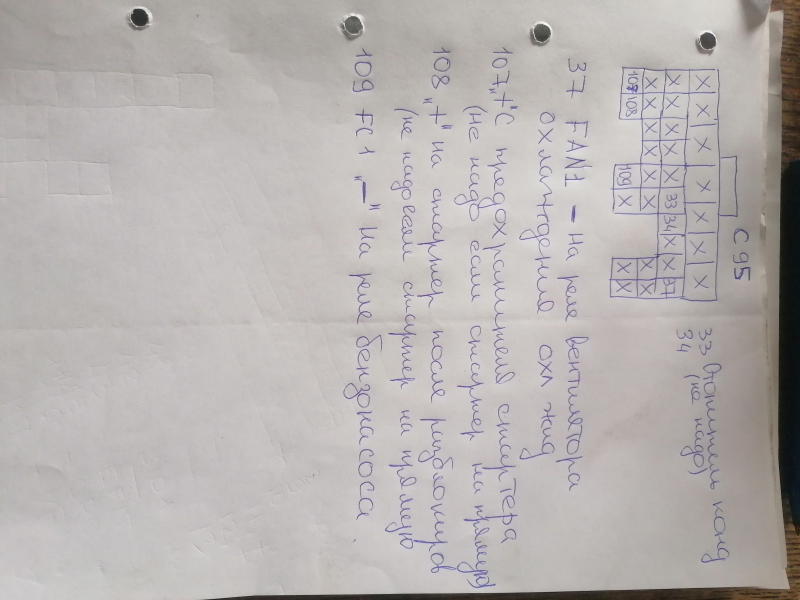 C 95
33 Отопитель конд
34 (не надо)
X X X X X X X
X X X X X 33 34 X X 37
X X X X X X X X
107 108 109 X X X
37 FAN1 – на реле вентилятора
охлаждения охл жид
107 „+“ с предохранителя стартера
(не надо если стартер на прямую)
108 „+“ на стартер после разблокиров
(не надо если стартер на прямую
109 FC1 „–“ на реле бензонасоса